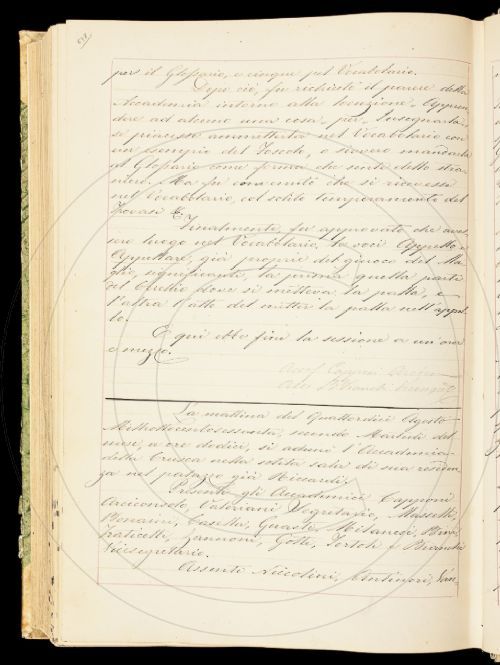 per il Glossario, e cinque pel Vocabolario.
Dopo ciò, fu richiesto il parere della
Accademia intorno alla locuzione, Appren-
dere ad alcuno una cosa, per, Insegnarla,
se piacesse ammetterla nel Vocabolario con
un esempio del Foscolo, o sivvero mandarla
al Glossario come forma che sente dello stra-
niero. Ma fu convenuto che si ricevesse
nel Vocabolario, col solito temperamento del
Trovasi &.
Finalmente, fu approvato che aves-
sero luogo nel Vocabolario, le voci Appello e
Appellare, già proprie del giuoco del Ma-
glio, significanti, la prima quella parte
del Cerchio dove si metteva la palla, e
l'altra l'atto del metter la palla nell'appel-
lo.
E qui ebbe fine la sessione a un'ora
e mezzo.
La mattina del Quattordici Agosto
Milleottocentosessanta, secondo Martedì del
mese, a ore dodici, si adunò l'Accademia
della Crusca nella solita sala di sua residen-
za nel palazzo già Riccardi.
Presenti gli Accademici Capponi
Arciconsolo, Valeriani Segretario, Masselli
Bonaini, Casella, Guasti, Milanesi, Bini
Fraticelli, Zannoni, Gotti, Tortoli e Bianchi
Vicesegretario.
Assenti Niccolini, Antinori, Van-